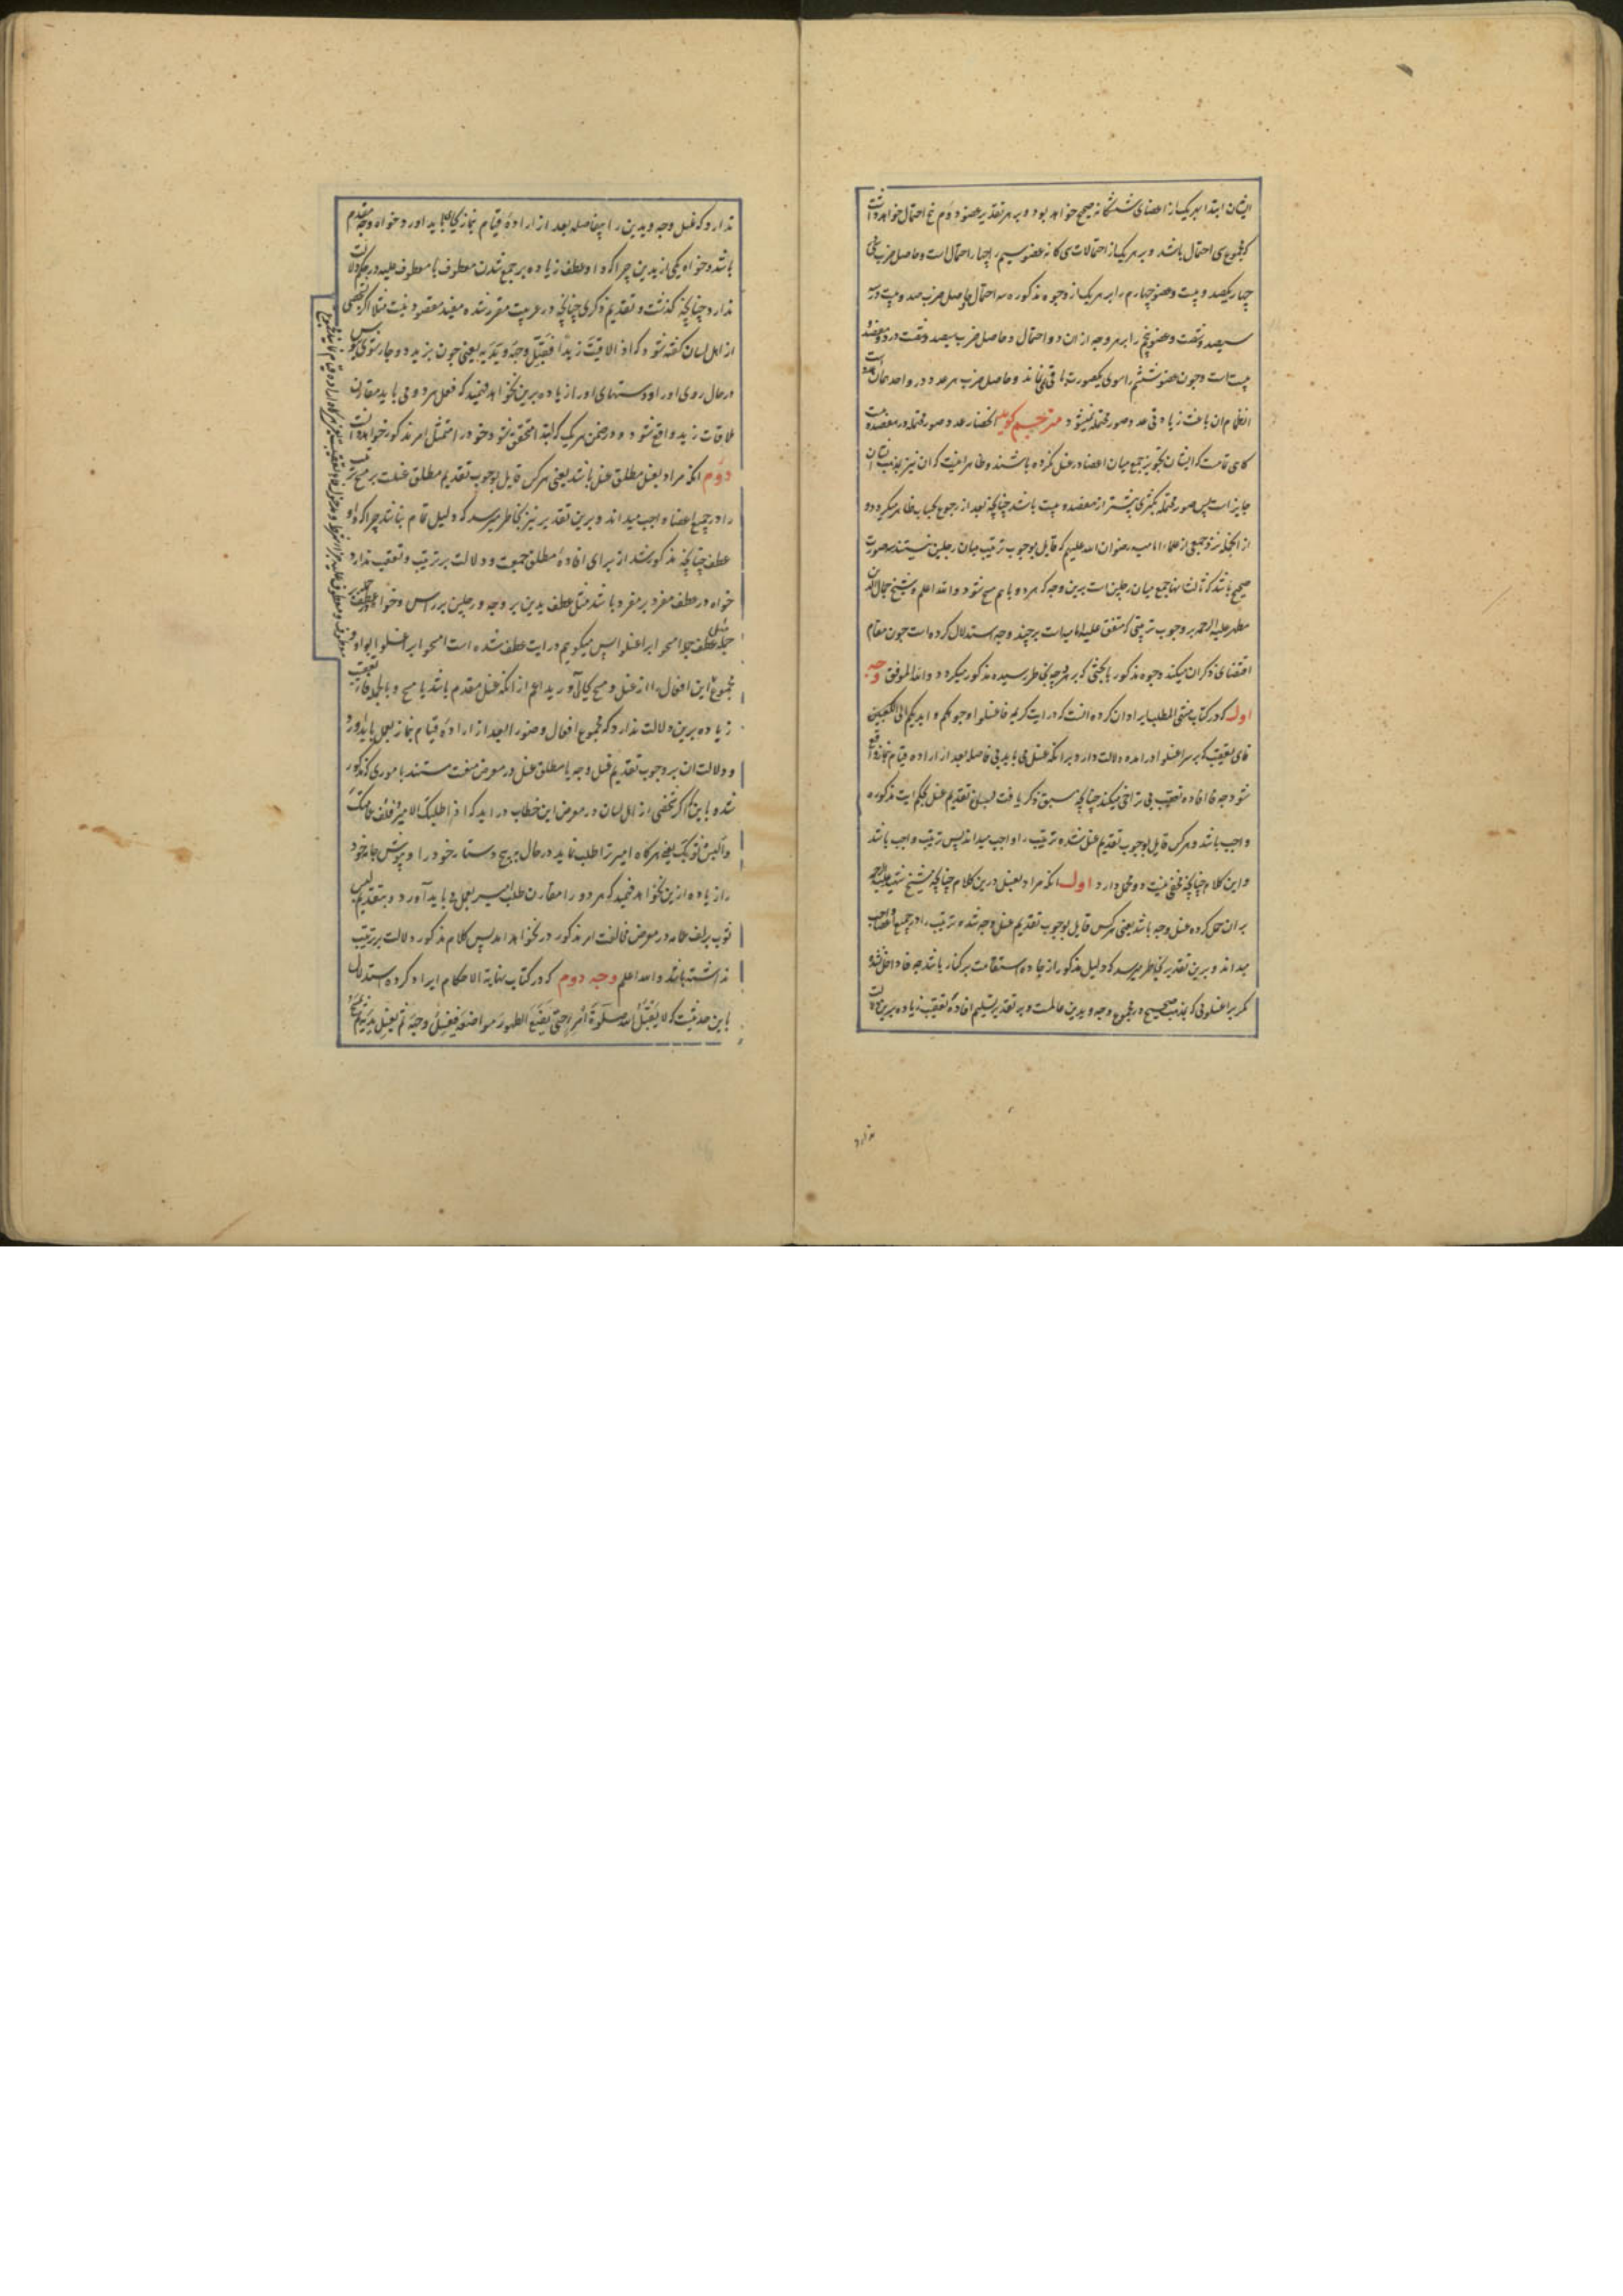 ایشان ابتدا بهر یک از اعضای ششگانه صحیح خواهد بود و بر هر تقدیر عضو دوم پنج احتمال خواهد داشت
که مجموع سی احتمال باشد و بر هر یک از احتمالات سی گانه عضو سیم را چهار احتمال است و حاصل ضرب سی در
چهار یکصد و بیست و عضو چهارم را بر هر یک از وجوه مذکوره سه احتمال و حاصل ضرب صد و بیست در سه
سیصد و شصت و عضو پنجم را بر هر وجه از آن دو احتمال و حاصل ضرب سیصد و شصت در دو هفتصد و
بیست است و چون عضو ششم را سوی یکصورت باقی نماند و حاصل ضرب هر عدد در واحد همان عدد است
انظام آن باعث زیادتی عدد صور محتمله نمیشود مترجم گوید انحصار عدد صور محتمله در هفتصد و بیست
گاهی تمامست که ایشان تجویز جمع میان اعضا در غسل نکرده باشند و ظاهر اینست که آن نیز بمذهب ایشان
جایز است پس صور محتمله بکثیری بیشتر از هفتصد و بیست باشد چنانچه بعد از رجوع بحساب ظاهر میگردد و
از انجمله نزد جمعی از علماء امامیه رضوان الله علیهم که قایل بوجوب ترتیب میان رجلین نیستند سه صورت
صحیح باشد که ثالث آنها جمع میان رجلین است برین وجه که هر دو با هم مسح شود و الله اعلم و شیخ جمال الدین
مطهر علیه الرحمه بر وجوب ترتیبی که متفق علیه امامیه است بر چند وجه استدلال کرده است چون مقام
اقتضای ذکر آن میکند وجوه مذکور با بحثی که بر هر وجه بخاطر رسیده مذکور میگردد و الله الموفق وجه
اول که در کتاب منتهی المطلب ایراد آن کرده آنست که در آیت کریمه فاغسلوا وجوهکم و ایدیکم الی الکعبین
فای تعقیب که بر سر اغسلوا در آمده دلالت دارد بر آنکه غسل می باید بی فاصله بعد از اراده قیام نماز واقع
شود چه فا افاده تعقیب بی تراخی میکند چنانچه سبق ذکر یافت پس تقدیم غسل بحکم آیت مذکوره
واجب باشد و هر کس قایل بوجوب تقدیم غسل شده ترتیب را واجب میداند پس ترتیب واجب باشد
و این کلام چنانچه مخفی نیست دو محمل دارد اول آنکه مراد بغسل درین کلام چنانچه شیخ شهید علیه الرحمه
بر آن حمل کرده غسل وجه باشد یعنی هر کس قایل بوجوب تقدیم غسل وجه شده ترتیب را در جمیع اعضا واجب
میداند و برین تقدیر بخاطر میرسد که دلیل مذکور از جاده استقامت بر کنار باشد چه فا داخل نشده
مگر بر اغسلوائی که بمذهب صحیح در مجموع وجه و یدین عاملست و بر تقدیر تسلیم افاده تعقیب زیاده برین دلالت
ندارد
ندارد که غسل وجه و یدین را بیفاصله بعد از اراده قیام نماز بجا می باید آورد خواه وجه مقدم
باشد و خواه یکی از یدین چرا که واو عطف زیاده بر جمع شدن معطوف با معطوف علیه در حکم دلالت
ندارد چنانچه گذشت و تقدیم ذکری چنانچه در عربیت مقرر شده مفید مقصود نیست مثلا اگر بشخصی
از اهل لسان گفته شود که اذا لاقیت زیدا فقبل وجهه و یدیه یعنی چون بزید دوچار شوی ببوس
در حال روی او را و دستهای او را زیاده برین نخواهد فهمید که فعل هر دو می باید مقارن
ملاقات زید واقع شود و در ضمن هر یک که ابتدا متحقق شود خود را متمثل امر مذکور خواهد دانست
دوم آنکه مراد بغسل مطلق غسل باشد یعنی هر کس قایل بوجوب تقدیم مطلق غسلست بر مسح ترتیب
را در جمیع اعضا واجب میداند و برین تقدیر نیز بخاطر میرسد که دلیل تمام نباشد چرا که واو
عطف چنانچه مذکور شد از برای افاده مطلق جمعیت و دلالت بر ترتیب و تعقیب ندارد
خواه در عطف مفرد بر مفرد باشد مثل عطف یدین بر وجه و رجلین بر راس و خواه عطف جمله بر
جمله مثل عطف جمله امسحوا بر اغسلوا پس میگوییم در آیت عطف شده است امسحوا بر اغسلوا بواو و
مجموع این افعال را از غسل و مسح بجا آورید اعم از آنکه غسل مقدم باشد یا مسح و بالجمله فاء تعقیب
زیاده برین دلالت ندارد که مجموع افعال وضو را بعد از اراده قیام نماز بعمل باید آورد
و دلالت آن بر وجوب تقدیم غسل وجه یا مطلق غسل در معرض منعست مستند باموری که مذکور
شده با این اگر شخصی از اهل لسان در معرض این خطاب در آید که اذا طلبک الامیر فلف عمامتک
و البس ثوبک یعنی هر گاه امیر ترا طلب نماید در حال بپیچ دستار خود را و بپوش جامه خود
را زیاده ازین نخواهد فهمید که هر دو را مقارن طلب امیر بعمل می باید آورد و بتقدیم لبس
ثوب بر لف عمامه در معرض مخالفت امر مذکور در نخواهد آمد پس کلام مذکور دلالت بر ترتیب
نداشته باشد و الله اعلم وجه دوم که در کتاب نهایة الاحکام ایراد کرده استدلال
باین حدیثست که لا یقبل الله صلوة امرء حتی یضع الطهور مواضعه فیغسل وجهه ثم یغسل یدیه ثم